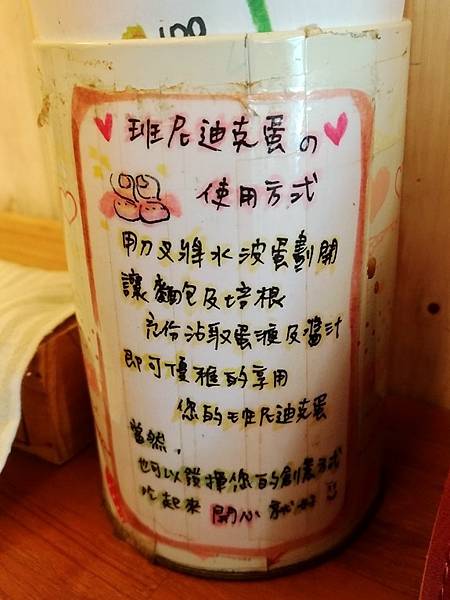 100
班尼迪克蛋の
使用方式
用刀叉將水波蛋劃開
讓麵包及培根
充份沾取蛋液及醬汁
即可優雅的享用
您的班尼迪克蛋
當然,
也可以發揮您的創意方式
吃起來 開心 就好